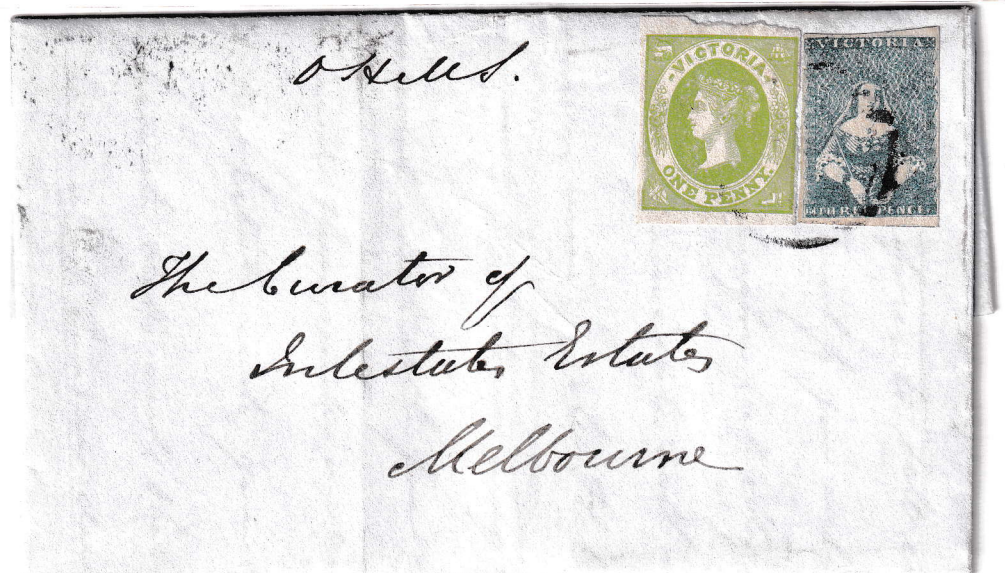 O H M S.
VICTORIA
ONE PENNY.
VICTORIA
THREE PENCE
The Curator of
Intestates Estates
Melbourne